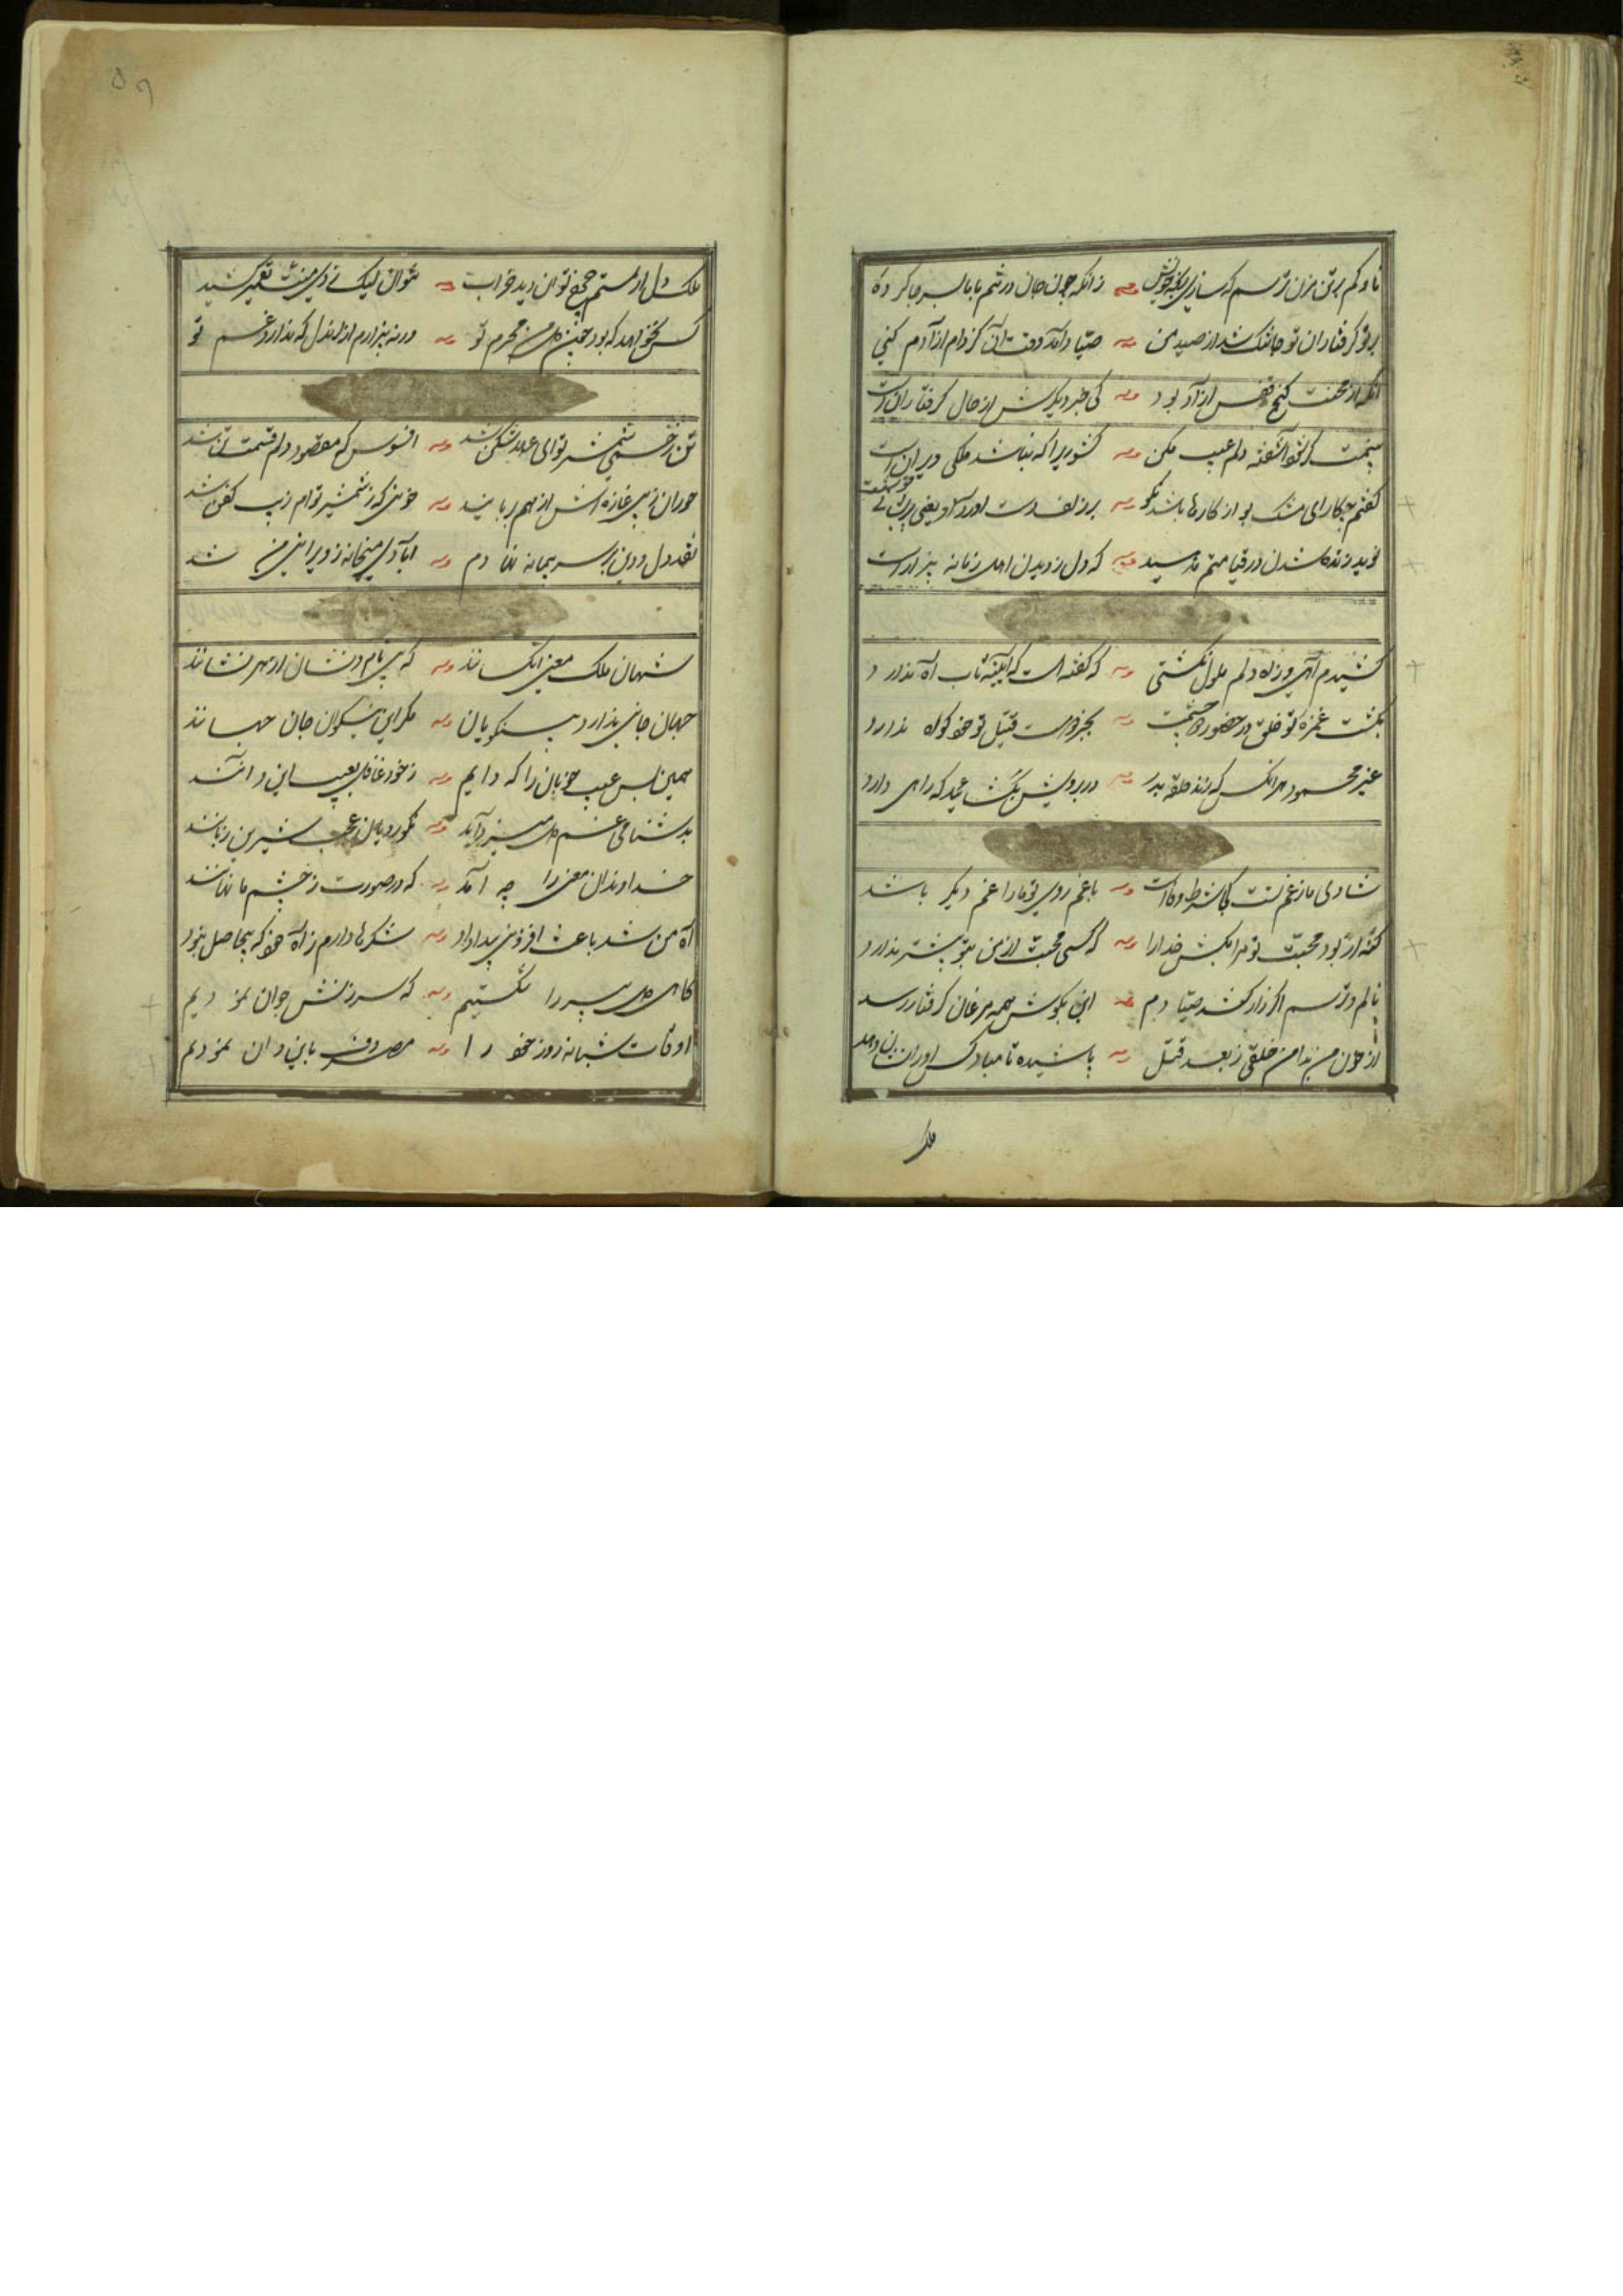 ناوکم بر تن مزن ترسم که سازی خویش
زانکه چون جان در تنم بابا کرده
بر تو گرفتاران تو جا تنگ شد از صید من
صیاد آمد وقت آن کز دام آزادم کنی
آنکه از محنت کنج قفس آزاد بود
کی خبر دیگرش از حال گرفتاران است
آشفته دلم عیب مکن
کشوریرا که نباشد ملکی ویران است
گفتم چکاره ای مشک بو از کارها باشد نکو
بر زلف دست آورد و یعنی پریشانی خوشست
نوید زنده شدن در قیامتم مدهید
که دل ز دیدن اهل زمانه بیزار است
کشیدم آهی و ز آه دلم ملول نگشتی
که گفته است که آیینه تاب آه ندارد
بکشت غمزه تو خلق در حضور دو چشمت
بجز دو مست قتیل تو خود گواه ندارد
غیر محمود هر آنکس که زند حلقه بدر
در برویش بگشائید که راهی دارد
شادی ما ز غم تست کجا شرط وفاست
با غم روی تو ما را غم دیگر باشد
گنه ار بود محبت تو مرا بکش خدا را
که کسی محبت از من بتو بیشتر ندارد
نالم و ترسم اگر زار کشد صیادم
این بگوش همه مرغان گرفتار رسد
از خون من بدامن خلقی ز بعد قتل
پاشیده تا مباد کس او را نشان دهد
ملک
ملک دل از ستم جمع توان دید خراب
نتوان لیک
کس نخواهد که بود جز دل من محرم تو
ورنه بیزارم از آن دل که ندارد غم تو
تن زخمی شمشیر تو ای عهد شکن شد
افسوس که مقصود دلم قسمت تن شد
حوران ز پی غازه اش از هم بربایند
خونی که ز شمشیر توام زیب کفن شد
نقد دل و دین بر سر پیمانه نهادم
آبادی میخانه ز ویرانی من شد
شهان ملک معنی آن کسانند
که بی نام و نشان از هر نشانند
جهان جانی ندارد بی نکویان
مگر این نیکوان جان جهانند
همین بس عیب خوبان را که دایم
ز خود غافل بعیب این و آنند
بدشنامی غم دل میزدایند
نکورویان عجب شیرین زبانند
خداوندان معنی را چه آمد
که در صورت ز چشم ما نهانند
آه من شد باعث افزونی بیداد او
شکرها دارم ز آه خود که بیحاصل نبود
گاهی دل پیر را شکستیم
گه سرزنش جوان نمودیم
اوقات شبانه روز خود را
مصروف باین و آن نمودیم